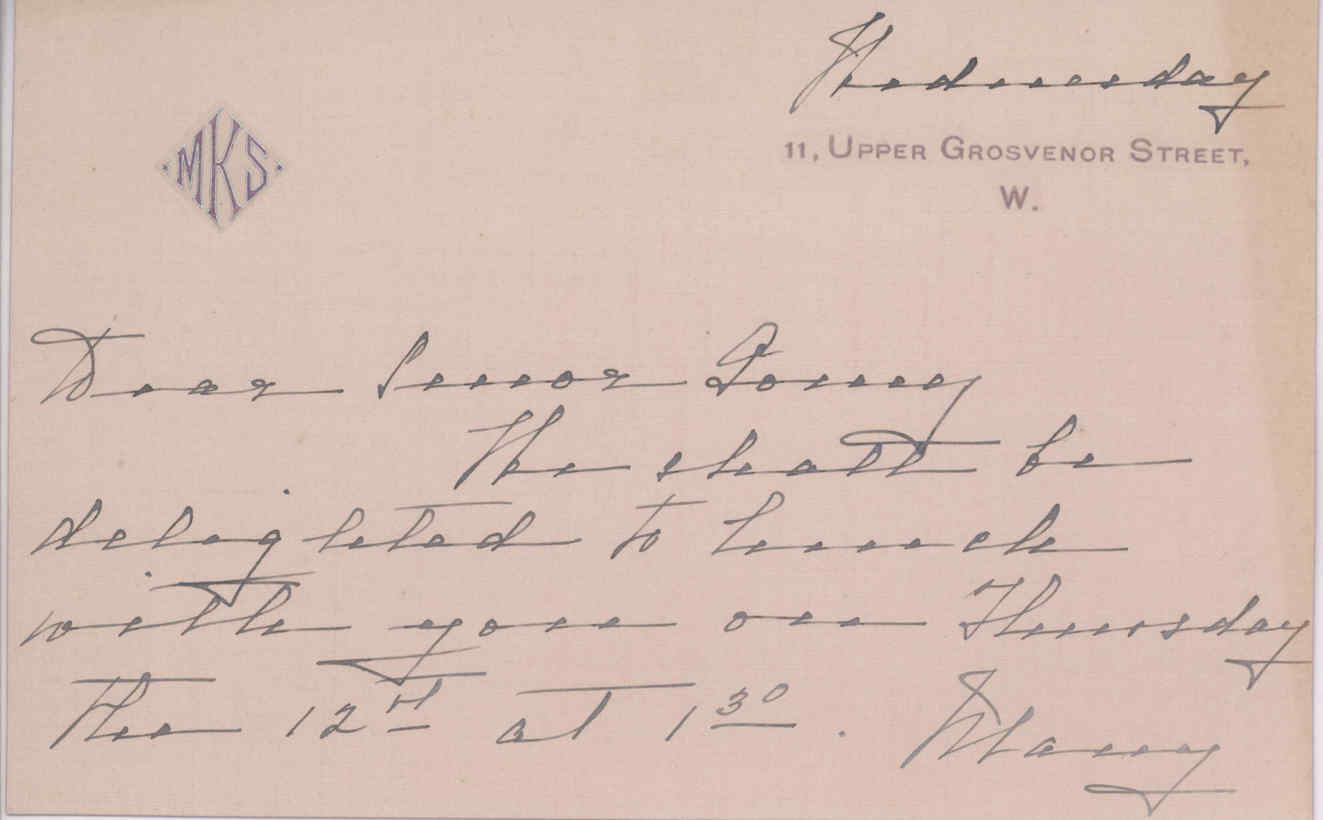 Wednesday
MKS
11, UPPER GROSVENOR STREET,
W.
Dear Senor
We shall be
delighted to lunch
with you on Thursday
the 12th at 1 30. Many